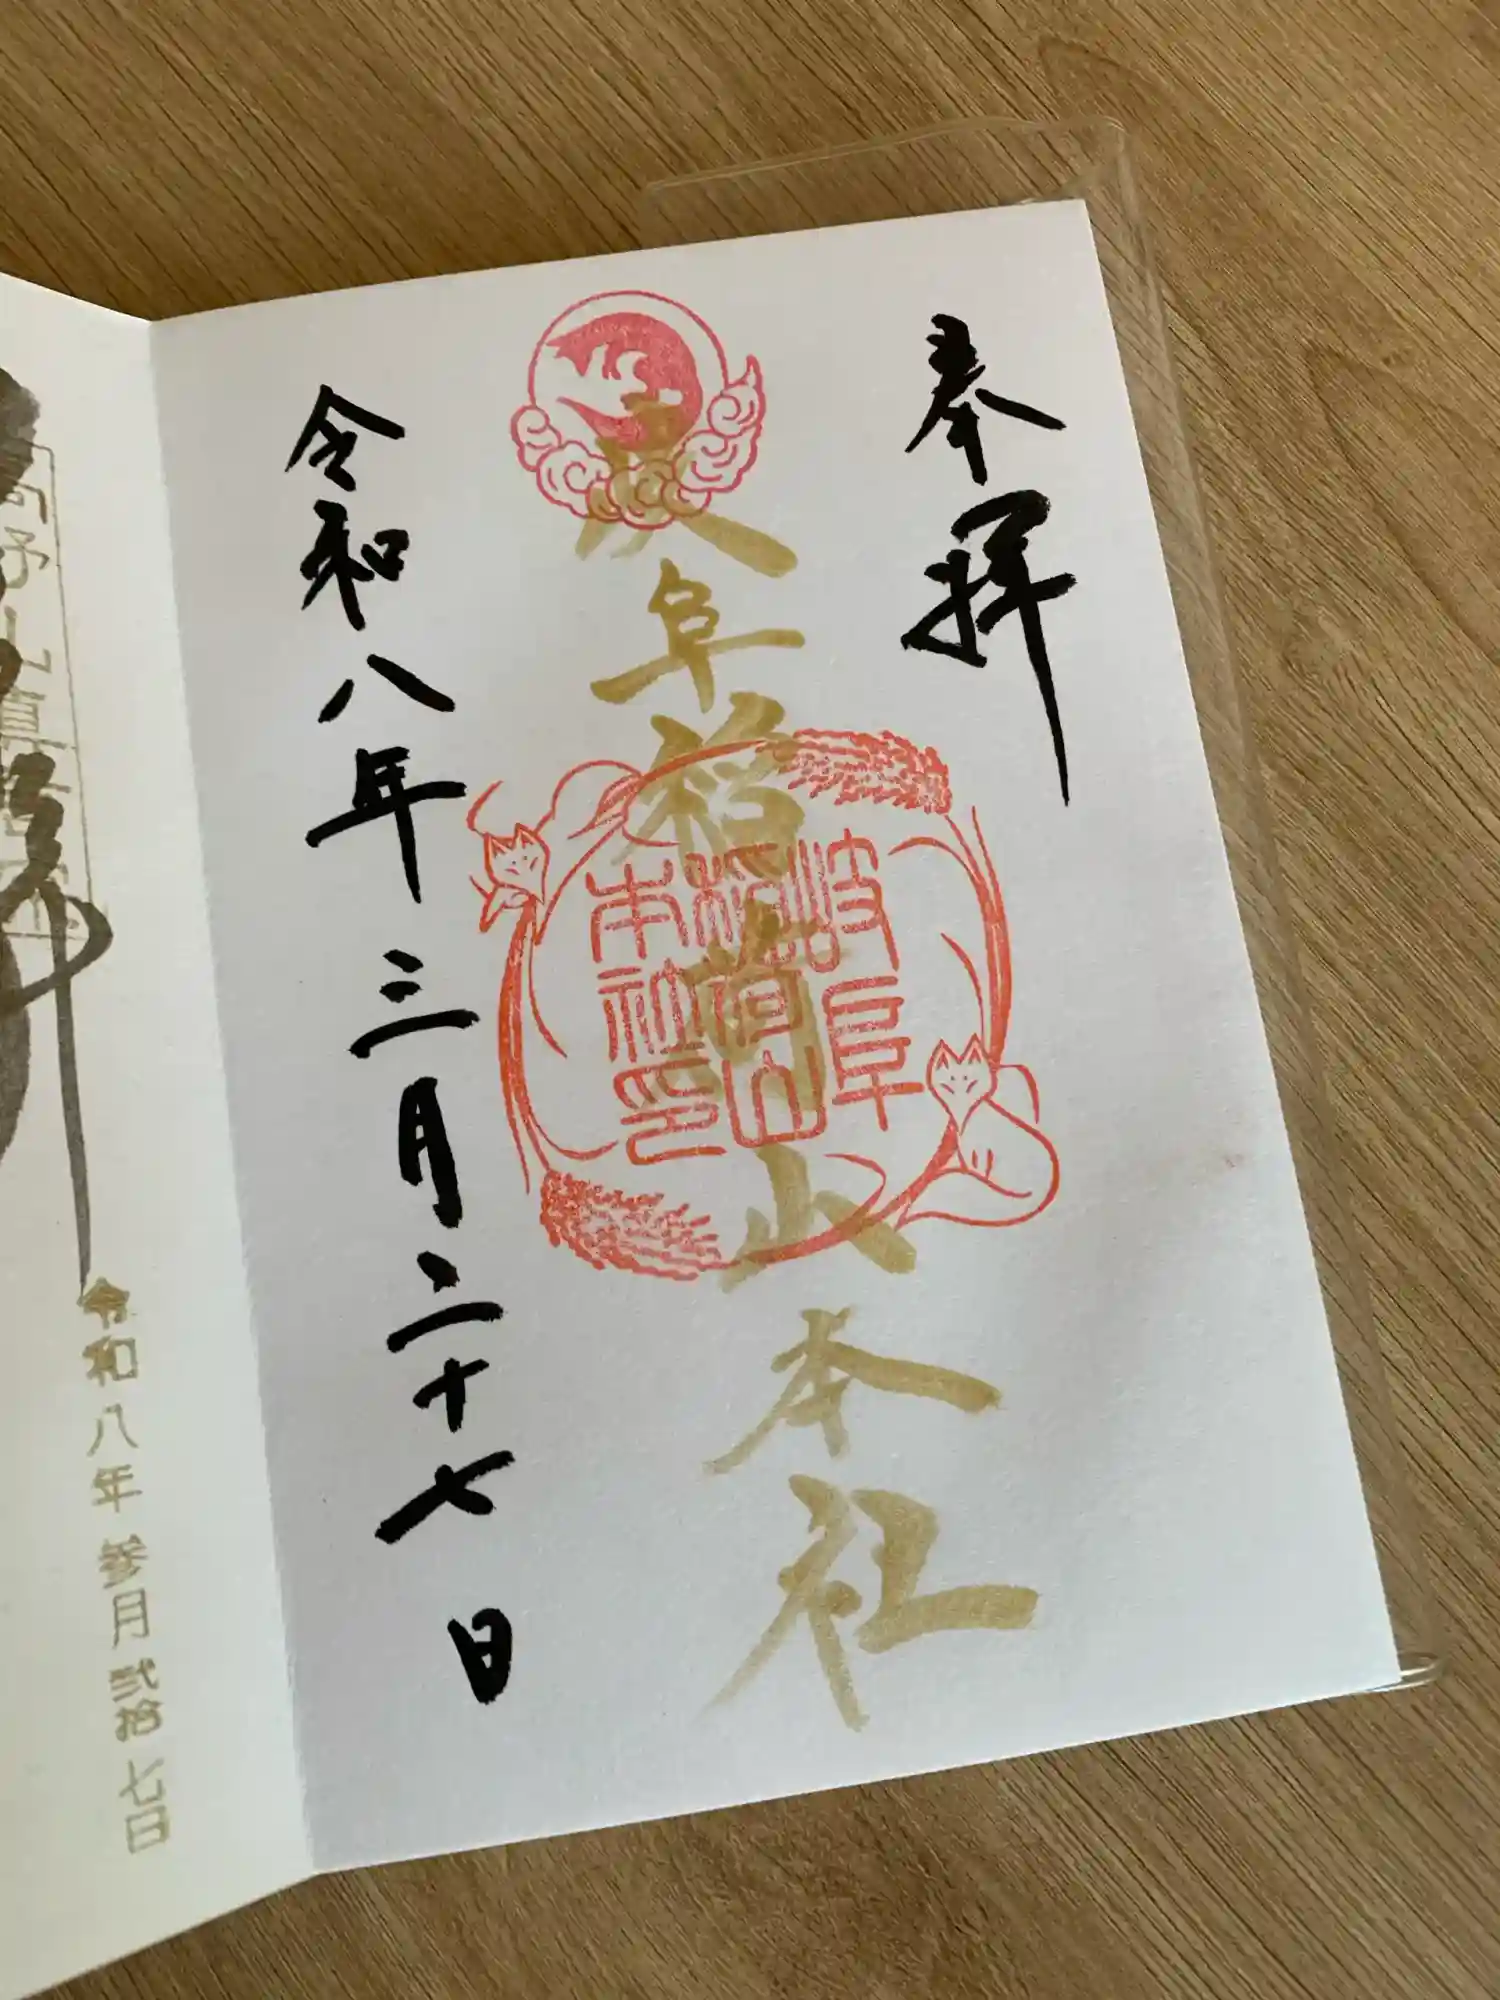 奉拝
岐阜稲荷山本社
岐阜
稲荷山
本社印
令和八年三月二十七日
令和八年参月弐拾七日